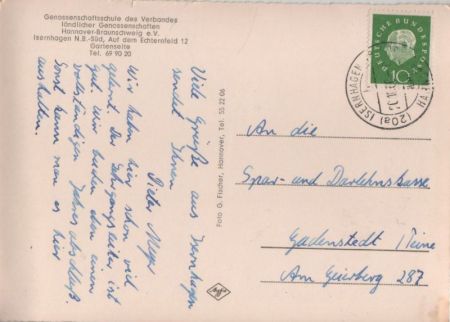 Genossenschaftsschule des Verbandes
ländlicher Genossenschaften
Hannover-Braunschweig e.V.
Isernhagen N.B.-Süd, Auf dem Echternfeld 12
Gartenseite
Tel. 69 90 20
Viele Grüße aus Isernhagen
sendet Ihnen
Dieter Meyer
Wir haben hier schon viel
gelernt. Der Lehrgangsleiter ist
gut. Wir buchen eben einen
vollständigen Jahresabschluß.
Sonst kann man es hier
aushalten.
Foto G. Fischer, Hannover, Tel. 55 22 06
Agfa
DEUTSCHE BUNDESPOST
10
(20a) ISERNHAGEN
An die
Spar- und Darlehnskasse
Gadenstedt / Peine
Am Geierberg 287